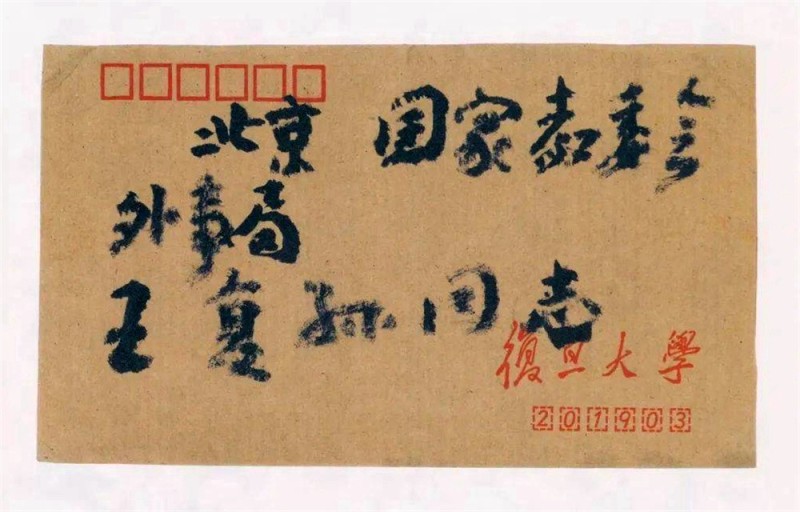 北京 国家教委会
外事局
王复孙同志
復旦大學
201903